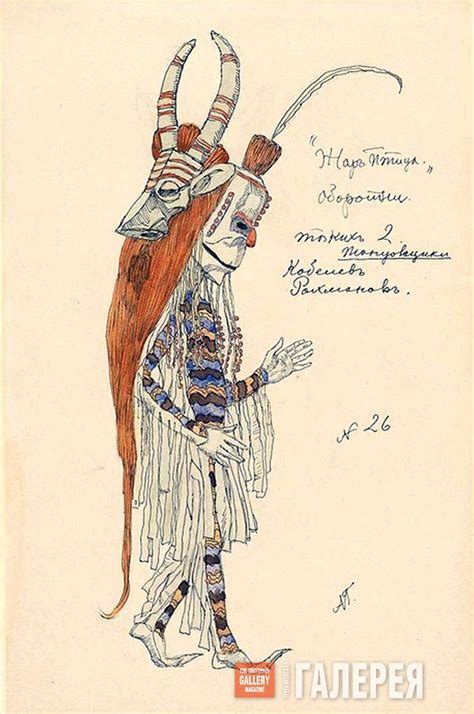 "Жаръ Птица."
Оборотни.
такихъ 2
танцовщики
Кобелевъ
Рахмановъ.
N 26
АГ.
THE TRETYAKOV
GALLERY
MAGAZINE
ГАЛЕРЕЯ